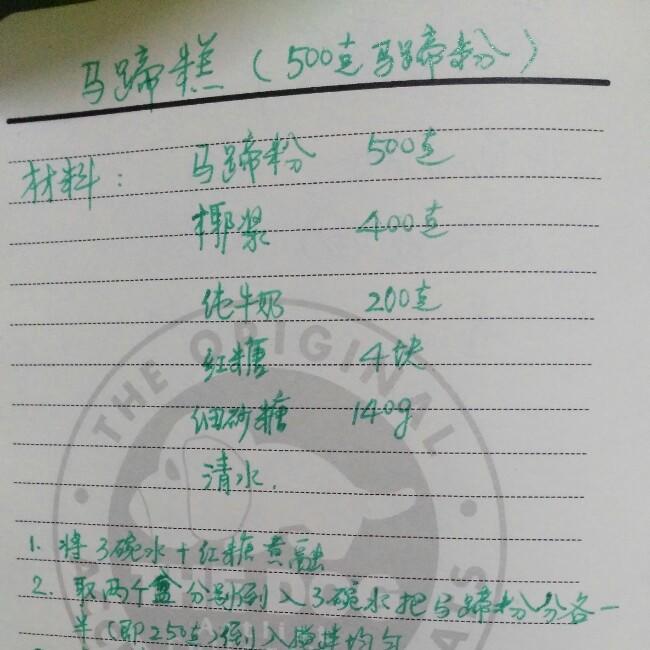 马蹄糕（500克马蹄粉）
材料： 马蹄粉 500克
椰浆 400克
纯牛奶 200克
红糖 4块
细砂糖 140g
清水.
THE ORIGINAL
1. 将3碗水+红糖煮融
2. 取两个盆分别倒入3碗水把马蹄粉分各一
半（即250克）倒入搅拌均匀